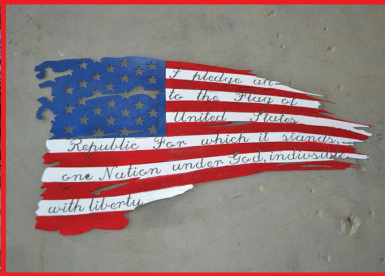 I pledge an
to the Flag of
United States
Republic For which it stands,
one Nation under God, indivisible
with liberty